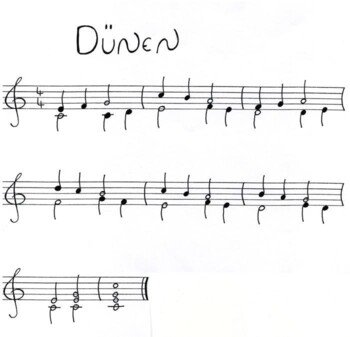 DÜNEN
4
4